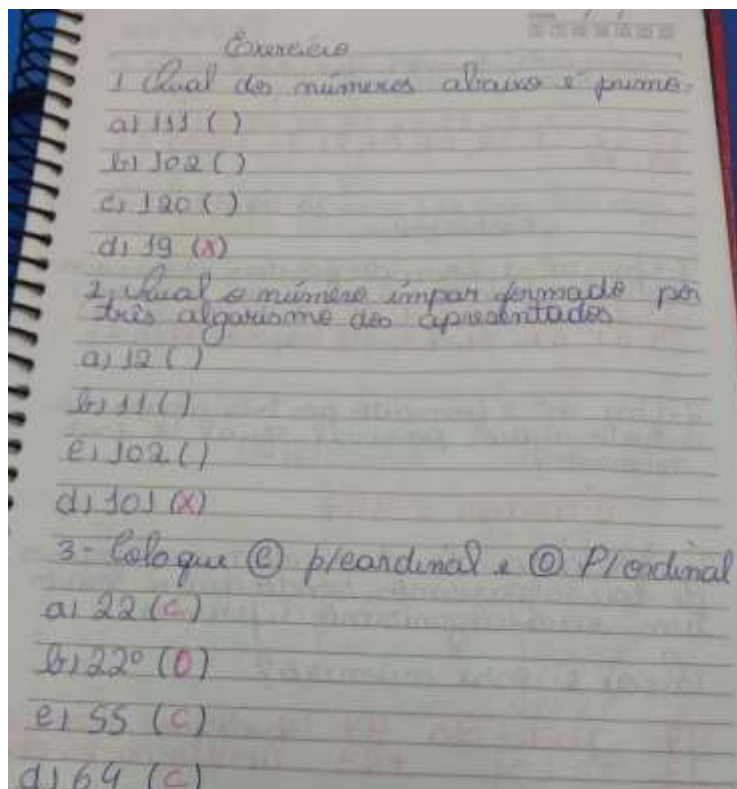 Exercicio
1 Qual dos números abaixo é primo.
a) 111 ( )
b) 102 ( )
c) 120 ( )
d) 19 (X)
2, Qual o número impar formado por
três algarismo dos apresentados
a) 12 ( )
b) 11 ( )
c) 102 ( )
d) 101 (X)
3 - Coloque Ⓒ p/cardinal e Ⓞ P/ordinal
a) 22 (C)
b) 22º (O)
c) 55 (C)
d) 64 (C)